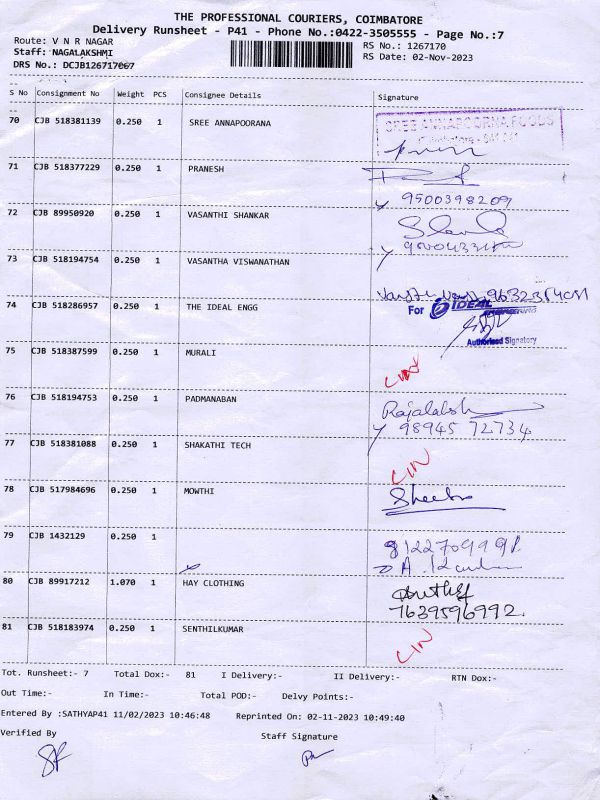 THE PROFESSIONAL COURIERS, COIMBATORE
Delivery Runsheet - P41 - Phone No.:0422-3505555 - Page No.:7
Route: V N R NAGAR RS No.: 1267170
Staff: NAGALAKSHMI RS Date: 02-Nov-2023
DRS No.: DCJB126717067
S No Consignment No Weight PCS Consignee Details Signature
70 CJB 518381139 0.250 1 SREE ANNAPOORANA SREE ANNAPOORNA FOODS
71 CJB 518377229 0.250 1 PRANESH
9500398209
72 CJB 89950920 0.250 1 VASANTHI SHANKAR
73 CJB 518194754 0.250 1 VASANTHA VISWANATHAN
74 CJB 518286957 0.250 1 THE IDEAL ENGG For IDEAL ENGINEERING
Authorised Signatory
75 CJB 518387599 0.250 1 MURALI
76 CJB 518194753 0.250 1 PADMANABAN
98945 72734
77 CJB 518381088 0.250 1 SHAKATHI TECH CIN
78 CJB 517984696 0.250 1 MOWTHI Sheeba
79 CJB 1432129 0.250 1
80 CJB 89917212 1.070 1 HAY CLOTHING
7639596992
81 CJB 518183974 0.250 1 SENTHILKUMAR CIN
Tot. Runsheet:- 7 Total Dox:- 81 I Delivery:- II Delivery:- RTN Dox:-
Out Time:- In Time:- Total POD:- Delvy Points:-
Entered By :SATHYAP41 11/02/2023 10:46:48 Reprinted On: 02-11-2023 10:49:40
Verified By Staff Signature